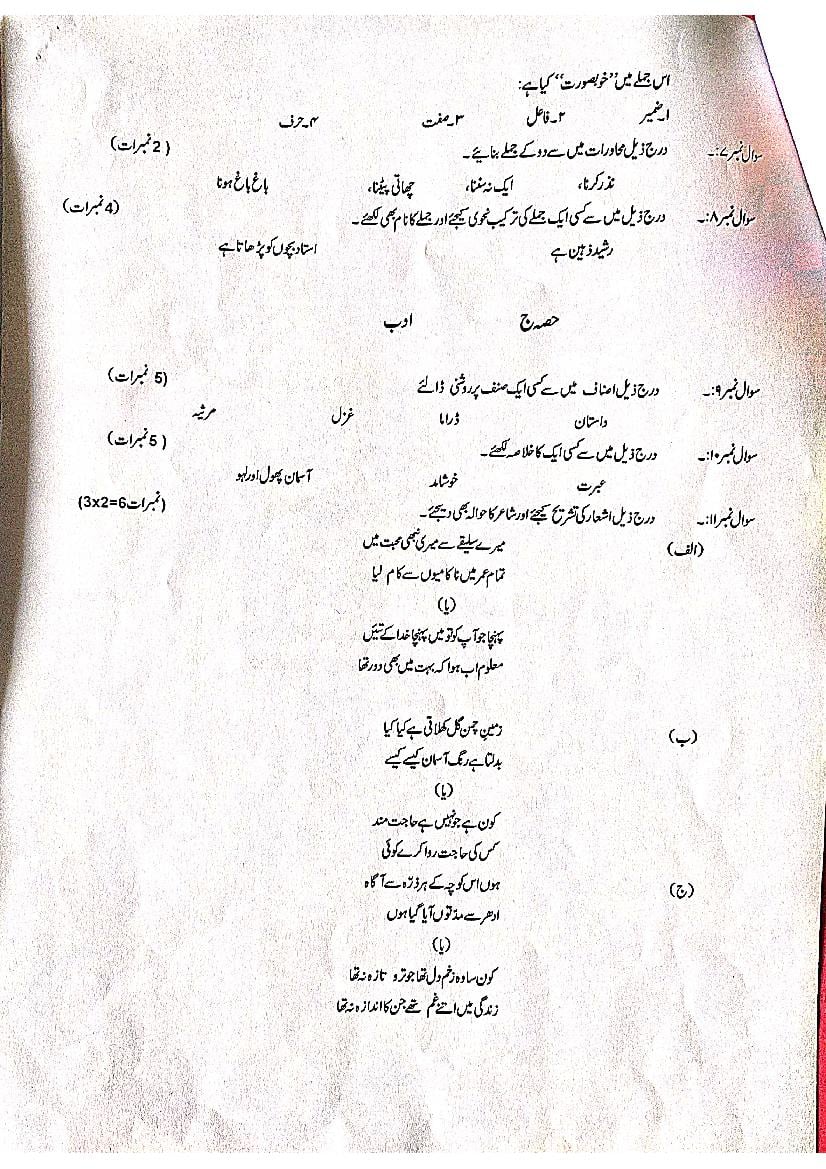 اس جملے میں "خوبصورت" کیا ہے:
۱۔ضمیر ۲۔فاعل ۳۔صفت ۴۔حرف
سوال نمبر۷:۔ درج ذیل محاورات میں سے دو کے جملے بنائیے۔ (2نمبرات)
نذر کرنا، ایک نہ سننا، چھاتی پیٹنا، باغ باغ ہونا
سوال نمبر۸:۔ درج ذیل میں سے کسی ایک جملے کی ترکیب نحوی کیجئے اور جملے کا نام بھی لکھئے۔ (4نمبرات)
رشید ذہین ہے استاد بچوں کو پڑھاتا ہے
حصہ ج ادب
سوال نمبر۹:۔ درج ذیل اصناف میں سے کسی ایک صنف پر روشنی ڈالئے (5نمبرات)
داستان ڈراما غزل مرثیہ
سوال نمبر۱۰:۔ درج ذیل میں سے کسی ایک کا خلاصہ لکھئے۔ (5نمبرات)
عبرت خوشامد آسمان پھول اور لہو
سوال نمبر۱۱:۔ درج ذیل اشعار کی تشریح کیجئے اور شاعر کا حوالہ بھی دیجئے۔ (3x2=6نمبرات)
(الف) میرے سلیقے سے میری نبھی محبت میں
تمام عمر میں ناکامیوں سے کام لیا
(یا)
پہنچا جو آپ کو تو میں پہنچا خدا کے تئیں
معلوم اب ہوا کہ بہت میں بھی دور تھا
(ب) زمین چمن گل کھلاتی ہے کیا کیا
بدلتا ہے رنگ آسمان کیسے کیسے
(یا)
کون ہے جو نہیں ہے حاجت مند
کس کی حاجت روا کرے کوئی
(ج) ہوں اس کوچہ کے ہر ذرّہ سے آگاہ
ادھر سے مدّتوں آیا گیا ہوں
(یا)
کون سا وہ زخم دل تھا جو تر و تازہ نہ تھا
زندگی میں اتنے غم تھے جن کا اندازہ نہ تھا